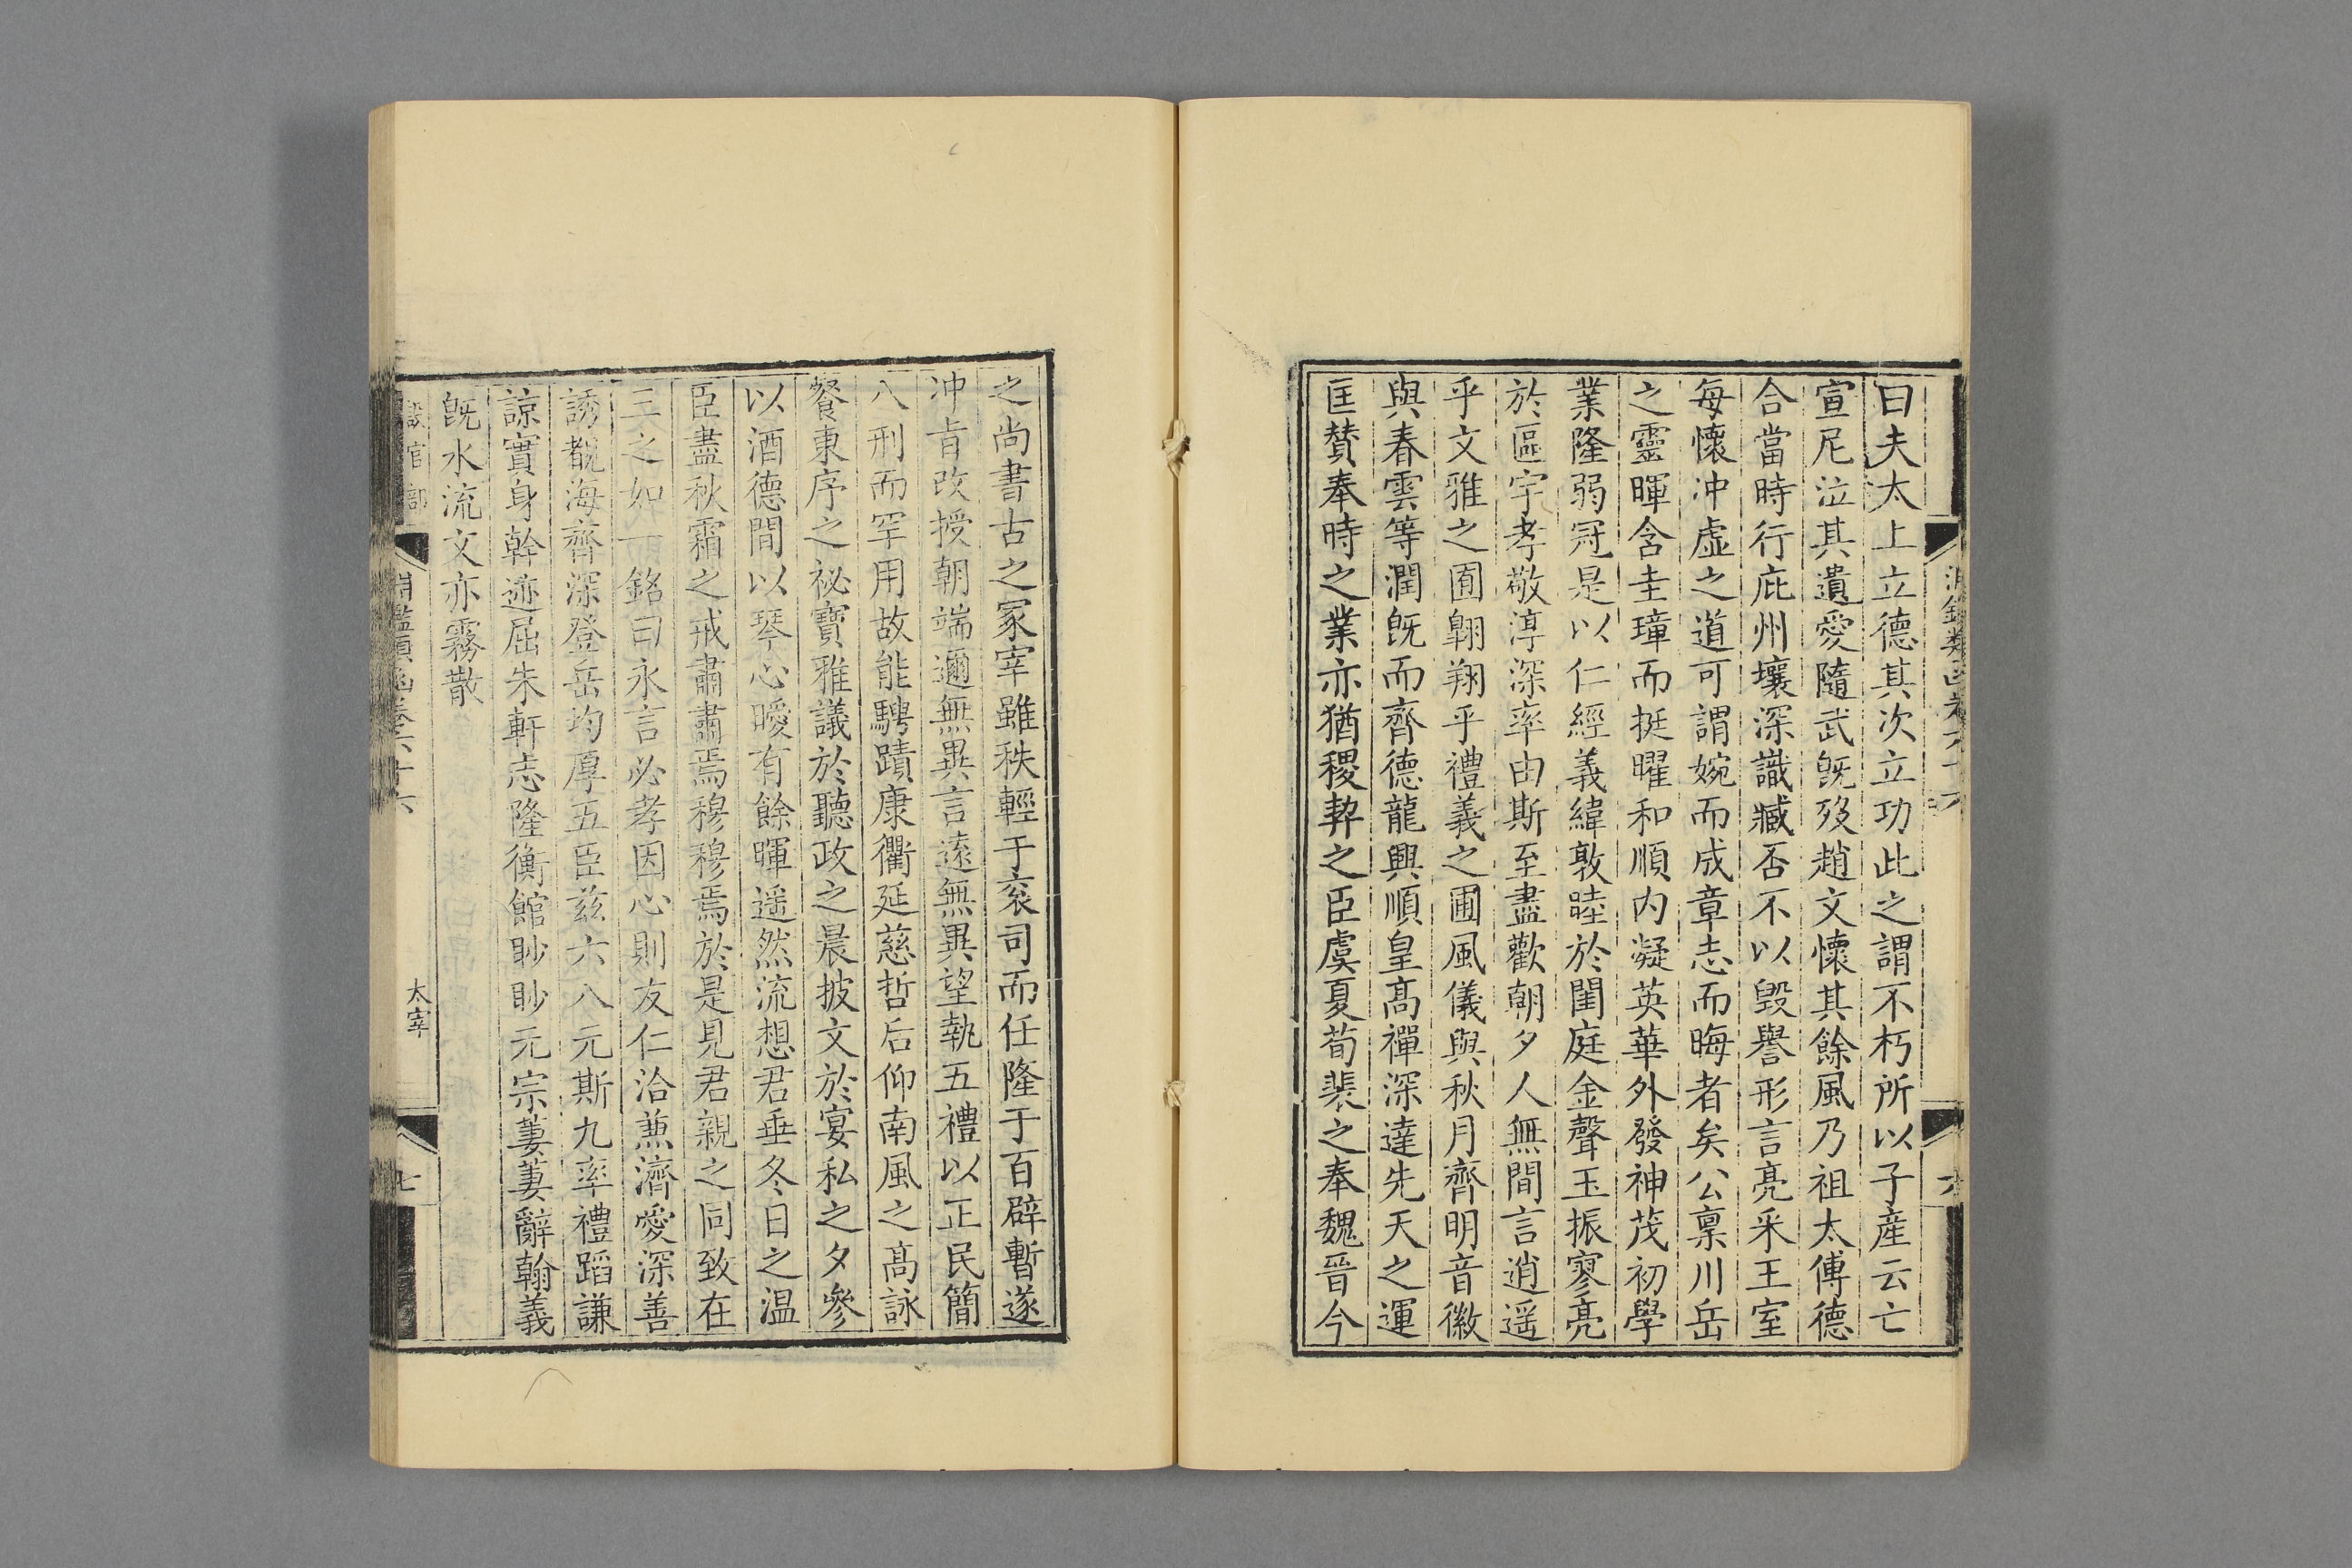 曰夫太上立德其次立功此之謂不朽所以子產云亡
宣尼泣其遺愛隨武旣歿趙文懷其餘風乃祖太傅德
合當時行庇州壤深識臧否不以毀譽形言亮采王室
每懷冲虛之道可謂婉而成章志而晦者矣公稟川岳
之靈暉含圭璋而挺曜和順內凝英華外發神茂初學
業隆弱冠是以仁經義緯敦睦於閨庭金聲玉振寥亮
於區宇孝敬淳深率由斯至盡歡朝夕人無間言逍遥
乎文雅之囿翺翔乎禮義之圃風儀與秋月齊明音徽
與春雲等潤旣而齊德龍興順皇高禪深達先天之運
匡贊奉時之業亦猶稷契之臣虞夏荀裴之奉魏晉今
之尚書古之冢宰雖秩輕于袞司而任隆于百辟暫遂
冲旨改授朝端邇無異言遠無異望執五禮以正民簡
八刑而罕用故能騁蹟康衢延慈哲后仰南風之高詠
餐東序之祕寶雅議於聽政之晨披文於宴私之夕參
以酒德間以琴心曖有餘暉遥然流想君垂冬日之温
臣盡秋霜之戒肅肅焉穆穆焉於是見君親之同致在
三之如一銘曰永言必孝因心則友仁洽兼濟愛深善
誘觀海齊深登岳均厚五臣茲六八元斯九率禮蹈謙
諒實身幹迹屈朱軒志隆衡館眇眇元宗萋萋辭翰義
旣水流文亦霧散
設官部 淵鑑類函卷六十六 太宰 七